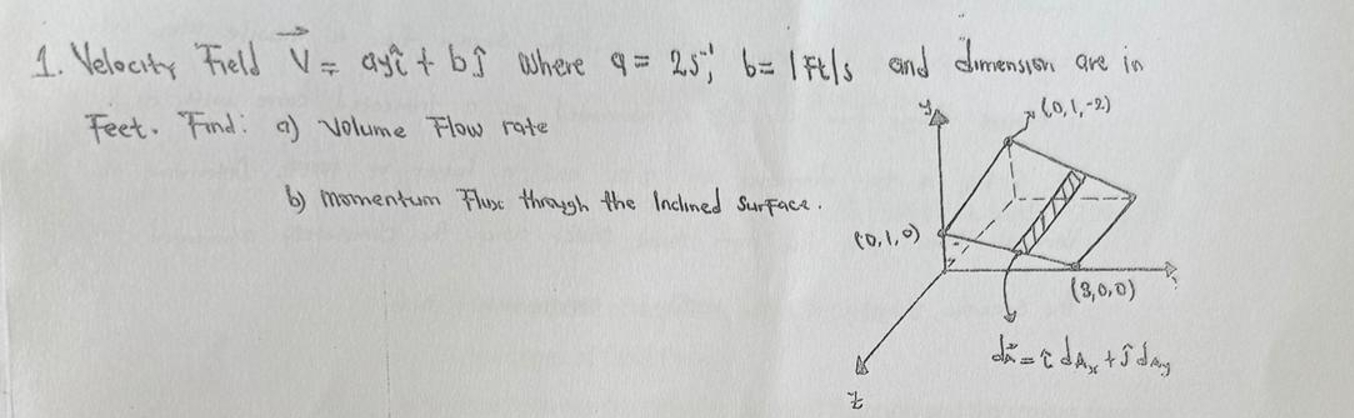 1. Velocity Field V = ayî + bĵ where a = 2s⁻¹, b = 1 Ft/s and dimension are in
Feet. Find: a) Volume Flow rate
b) Momentum Flux through the Inclined Surface.
y
(0,1,-2)
(0,1,0)
(3,0,0)
dA = î dAx + ĵ dAy
z